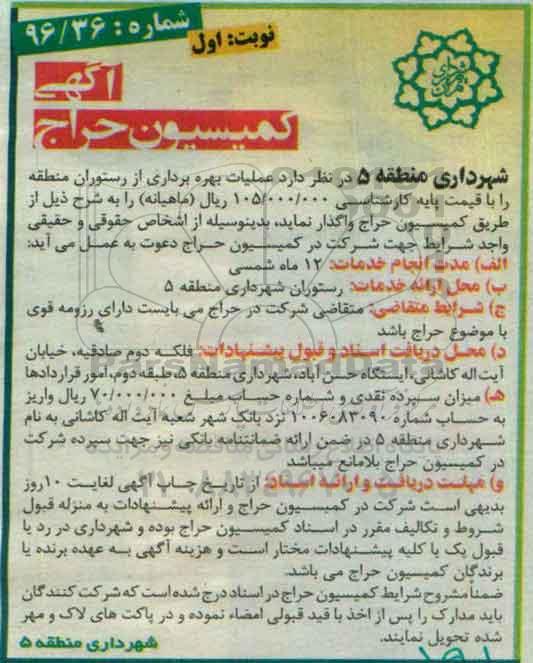 شماره: ۹۶/۳۶
نوبت: اول
آگهی
کمیسیون حراج
شهرداری منطقه ۵ در نظر دارد عملیات بهره برداری از رستوران منطقه
را با قیمت پایه کارشناسی ۱۰۵/۰۰۰/۰۰۰ ریال (ماهیانه) را به شرح ذیل از
طریق کمیسیون حراج واگذار نماید، بدینوسیله از اشخاص حقوقی و حقیقی
واجد شرایط جهت شرکت در کمیسیون حراج دعوت به عمل می آید:
الف) مدت انجام خدمات: ۱۲ ماه شمسی
ب) محل ارائه خدمات: رستوران شهرداری منطقه ۵
ج) شرایط متقاضی: متقاضی شرکت در حراج می بایست دارای رزومه قوی
با موضوع حراج باشد
د) محل دریافت اسناد و قبول پیشنهادات: فلکه دوم صادقیه، خیابان
آیت اله کاشانی، ایستگاه حسن آباد، شهرداری منطقه ۵، طبقه دوم، امور قراردادها
هـ) میزان سپرده نقدی و شماره حساب مبلغ ۷۰/۰۰۰/۰۰۰ ریال واریز
به حساب شماره ۱۰۰۶۰۸۳۰۹۰ نزد بانک شهر شعبه آیت اله کاشانی به نام
شهرداری منطقه ۵ در ضمن ارائه ضمانتنامه بانکی نیز جهت سپرده شرکت
در کمیسیون حراج بلامانع میباشد
و) مهلت دریافت و ارائه اسناد: از تاریخ چاپ آگهی لغایت ۱۰ روز
بدیهی است شرکت در کمیسیون حراج و ارائه پیشنهادات به منزله قبول
شروط و تکالیف مقرر در اسناد کمیسیون حراج بوده و شهرداری در رد یا
قبول یک یا کلیه پیشنهادات مختار است و هزینه آگهی به عهده برنده یا
برندگان کمیسیون حراج می باشد.
ضمناً مشروح شرایط کمیسیون حراج در اسناد درج شده است که شرکت کنندگان
باید مدارک را پس از اخذ با قید قبولی امضاء نموده و در پاکت های لاک و مهر
شده تحویل نمایند.
شهرداری منطقه ۵